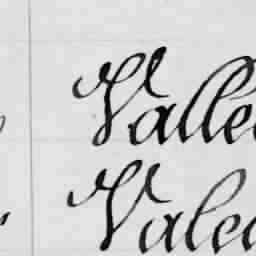 Valle
Vale